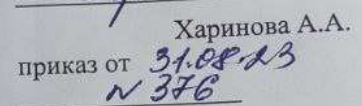 Харинова А.А.
приказ от 31.08.23
№ 376